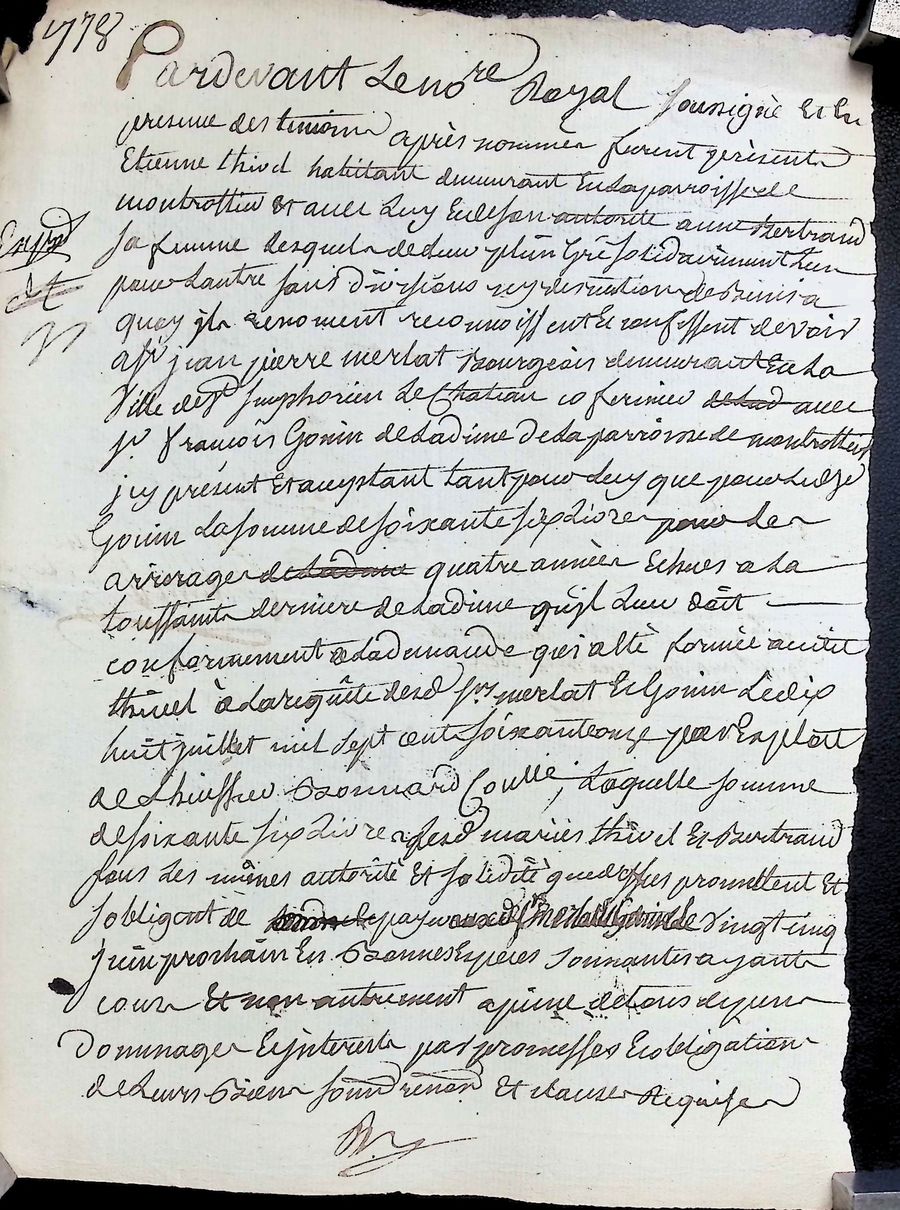 1778
Pardevant Le no.re Royal soussigné Et En
presence des temoins après nommés furent présents
Etienne thivel habitant demeurant En la parroisse de
montrottier Et avec Luy Et de son autorité anne Bertrand
sa femme Lesquels de Leur plein Gré solidairement L'un
pour Lautre sans division ny discution de Biens a
quoy jls renoncent reconnoissent Et confessent devoir
a sr jean pierre merlat Bourgeois demeurant En La
Ville de st Simphorien Le Chateau cofermier avec
sr francois Gonin de Ladime de La parroisse de montrottier
jcy présent Et acceptant tant pour Luy que pour Ledt sr
Gonin La somme de soixante six Livres pour Les
arrerages de Ladime quatre années Echues a La
toussaint derniere de Ladime qu'jl Leur doit
conformement a La demande qui a été formée audit
thivel à La requête desd srs merlat Et Gonin Le dix
huit juillet mil sept cent soixante onze par Exploit
de L'huissier Bonnard Coulle; Laquelle somme
de soixante six Livres Lesd mariés thivel Et Bertrand
sous Les mêmes autorité Et solidité que dessus promettent Et
s'obligent de payer auxd srs merlat Et Gonin Le vingt cinq
juin prochain En Bonnes Especes sonnantes ayants
cours Et non autrement a peine de tous depens
Dommages Et jnterests par promesses Et obligation
de Leurs Biens soumd renond Et clauses Requises